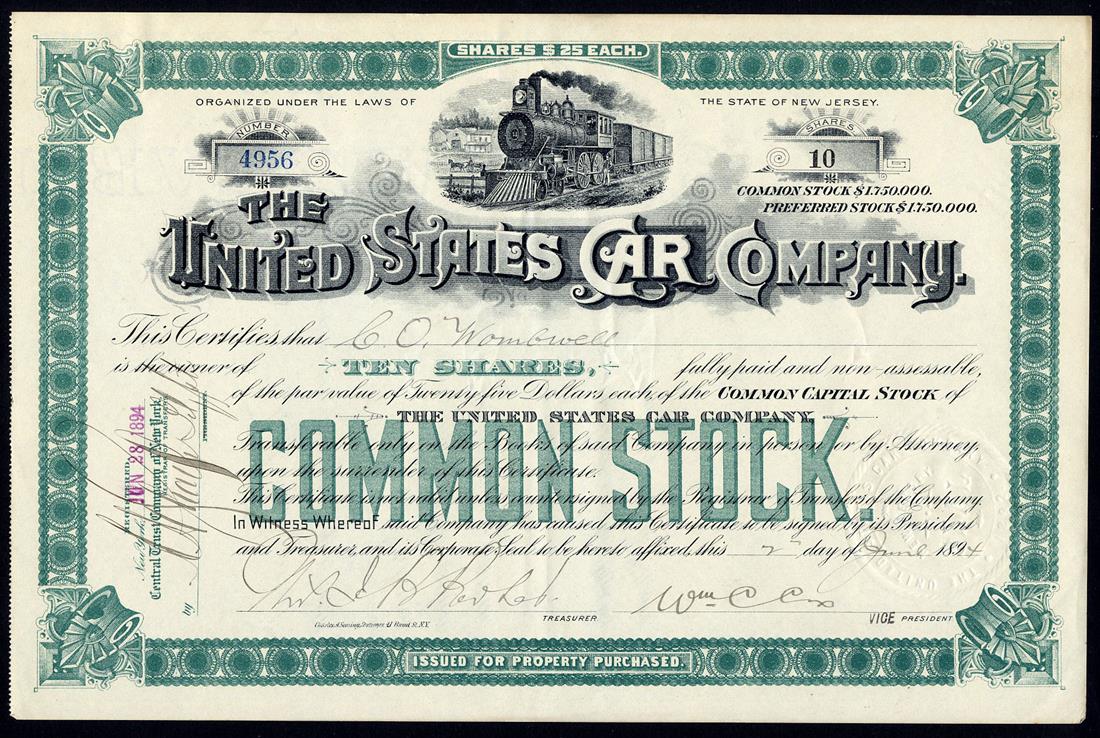 SHARES $25 EACH.
ORGANIZED UNDER THE LAWS OF THE STATE OF NEW JERSEY.
NUMBER
4956
SHARES
10
COMMON STOCK $1.750.000.
PREFERRED STOCK $1.750.000.
THE
UNITED STATES CAR COMPANY.
This Certifies, that C. O. Wombwell
is the owner of TEN SHARES, fully paid and non-assessable,
of the par value of Twenty five Dollars each, of the COMMON CAPITAL STOCK of
THE UNITED STATES CAR COMPANY,
COMMON STOCK.
Transferable only on the Books of said Company in person or by Attorney,
upon the surrender of this Certificate.
This Certificate is not valid unless countersigned by the Registrar of Transfers of the Company.
In Witness Whereof said Company has caused this Certificate to be signed by its President
and Treasurer, and its Corporate Seal to be hereto affixed, this day of June 1894
Wm C Cox
TREASURER. VICE PRESIDENT
REGISTERED
New York, JUN 28 1894
Central Trust Company of New York,
REGISTRAR OF TRANSFERS
by
ISSUED FOR PROPERTY PURCHASED.